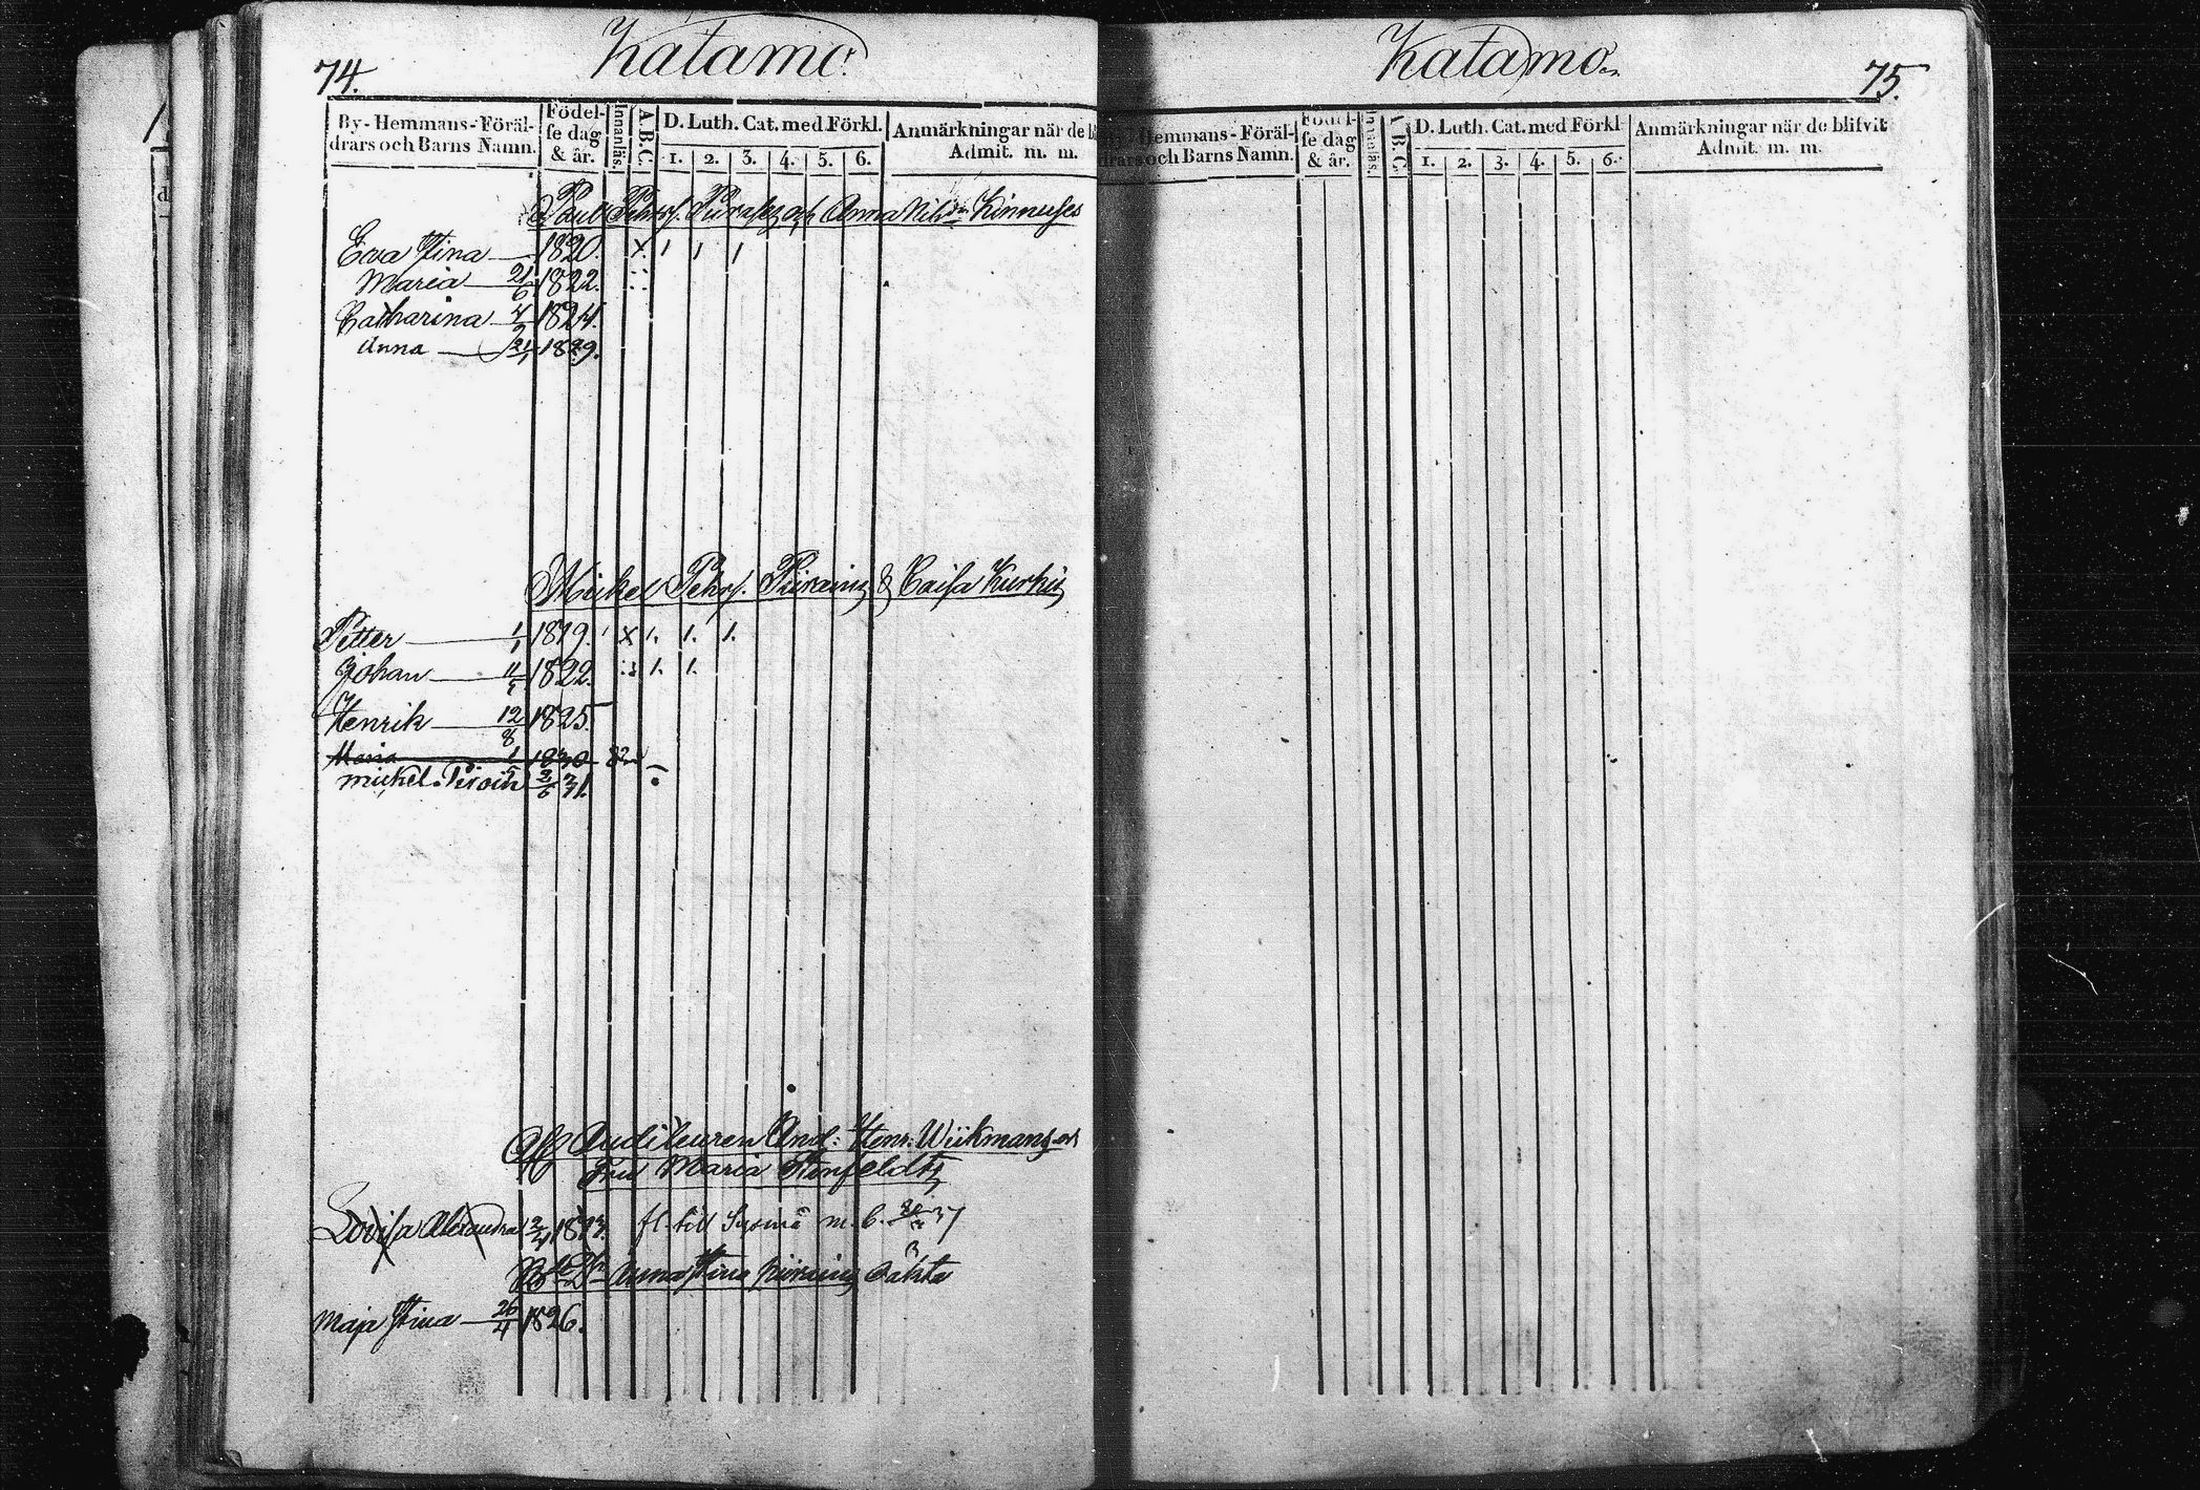 74.
Katamo.
By-Hemmans-Föräl-
drars och Barns Namn.
Födel-
se dag
& år.
Innanläs.
A.B.C.
D. Luth. Cat. med Förkl.
1. 2. 3. 4. 5. 6.
Anmärkningar när de bl
Admit. m. m.
Paul Pehrs. och Anna Nilsdr Kinnuses
Eva Stina 1820. x 1 1 1
Maria 21/6 1822.
Catharina 4/2 1824.
Anna 21/1 1829.
Mickel Pehrs. Piirainz & Caisa Kurkiz
Petter 1/1 1819. x 1. 1. 1.
Johan 1822. 1. 1.
Henrik 12/8 1825
Maria 1830
Mickel 2/6 31.
Aff Auditeuren And: Henr: Wiikmans och
Fru Maria Stenfeldtz
Lovisa Alexandra 2/4 181 fl. till m. b. 37
Anna Stina oäkta
Maja Stina 26/4 1826.
Katamo
75.
Hemmans-Föräl-
drars och Barns Namn.
Födel-
se dag
& år.
Innanläs.
A.B.C.
D. Luth. Cat. med Förkl
1. 2. 3. 4. 5. 6.
Anmärkningar när de blifvit
Admit. m. m.